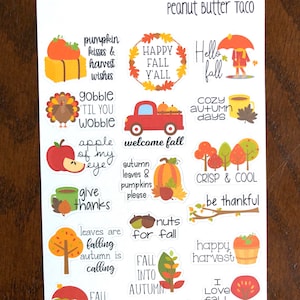 Peanut Butter Taco
pumpkin
kisses &
harvest
wishes
HAPPY
FALL
Y'ALL
Hello
fall
gobble
'TIL YOU
wobble
welcome fall
cozy
autumn
days
apple
of my
eye
autumn
leaves &
pumpkins
please
CRISP & COOL
give
thanks
nuts
for fall
be thankful
leaves are
falling
autumn is
calling
FALL
INTO
AUTUMN
happy
harvest
I
LOVE
fall
FALL